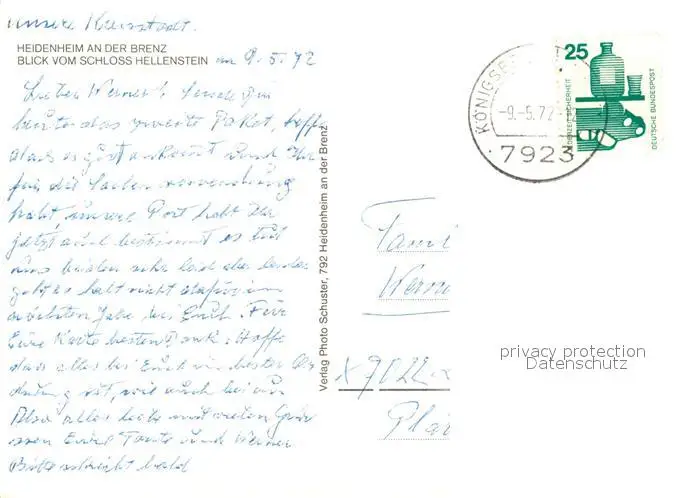 unsere Kreisstadt.
HEIDENHEIM AN DER BRENZ
BLICK VOM SCHLOSS HELLENSTEIN am 9.5.72
Lieber Werner! Sende Dir
heute das zweite Paket, hoffe
dass es gut ankommt und Ihr
für die Sachen Verwendung
habt, unsere Post habt Ihr
jetzt auch bestimmt es tut
uns beiden sehr leid aber
geht es halt nicht
nächsten Jahr bei Euch. Für
Eure Karte besten Dank. Hoffe
dass alles bei Euch in bester Ord
nung ist, wie auch bei uns
Also alles liebe und vielen Grüs
sen Eure Tante und
Bitte schreibt bald
Verlag Photo Schuster, 792 Heidenheim an der Brenz
KÖNIGSB
-9.-5.72
7923
25
JEDERZEIT SICHERHEIT
DEUTSCHE BUNDESPOST
Fami
Werne
X 9022
privacy protection
Datenschutz